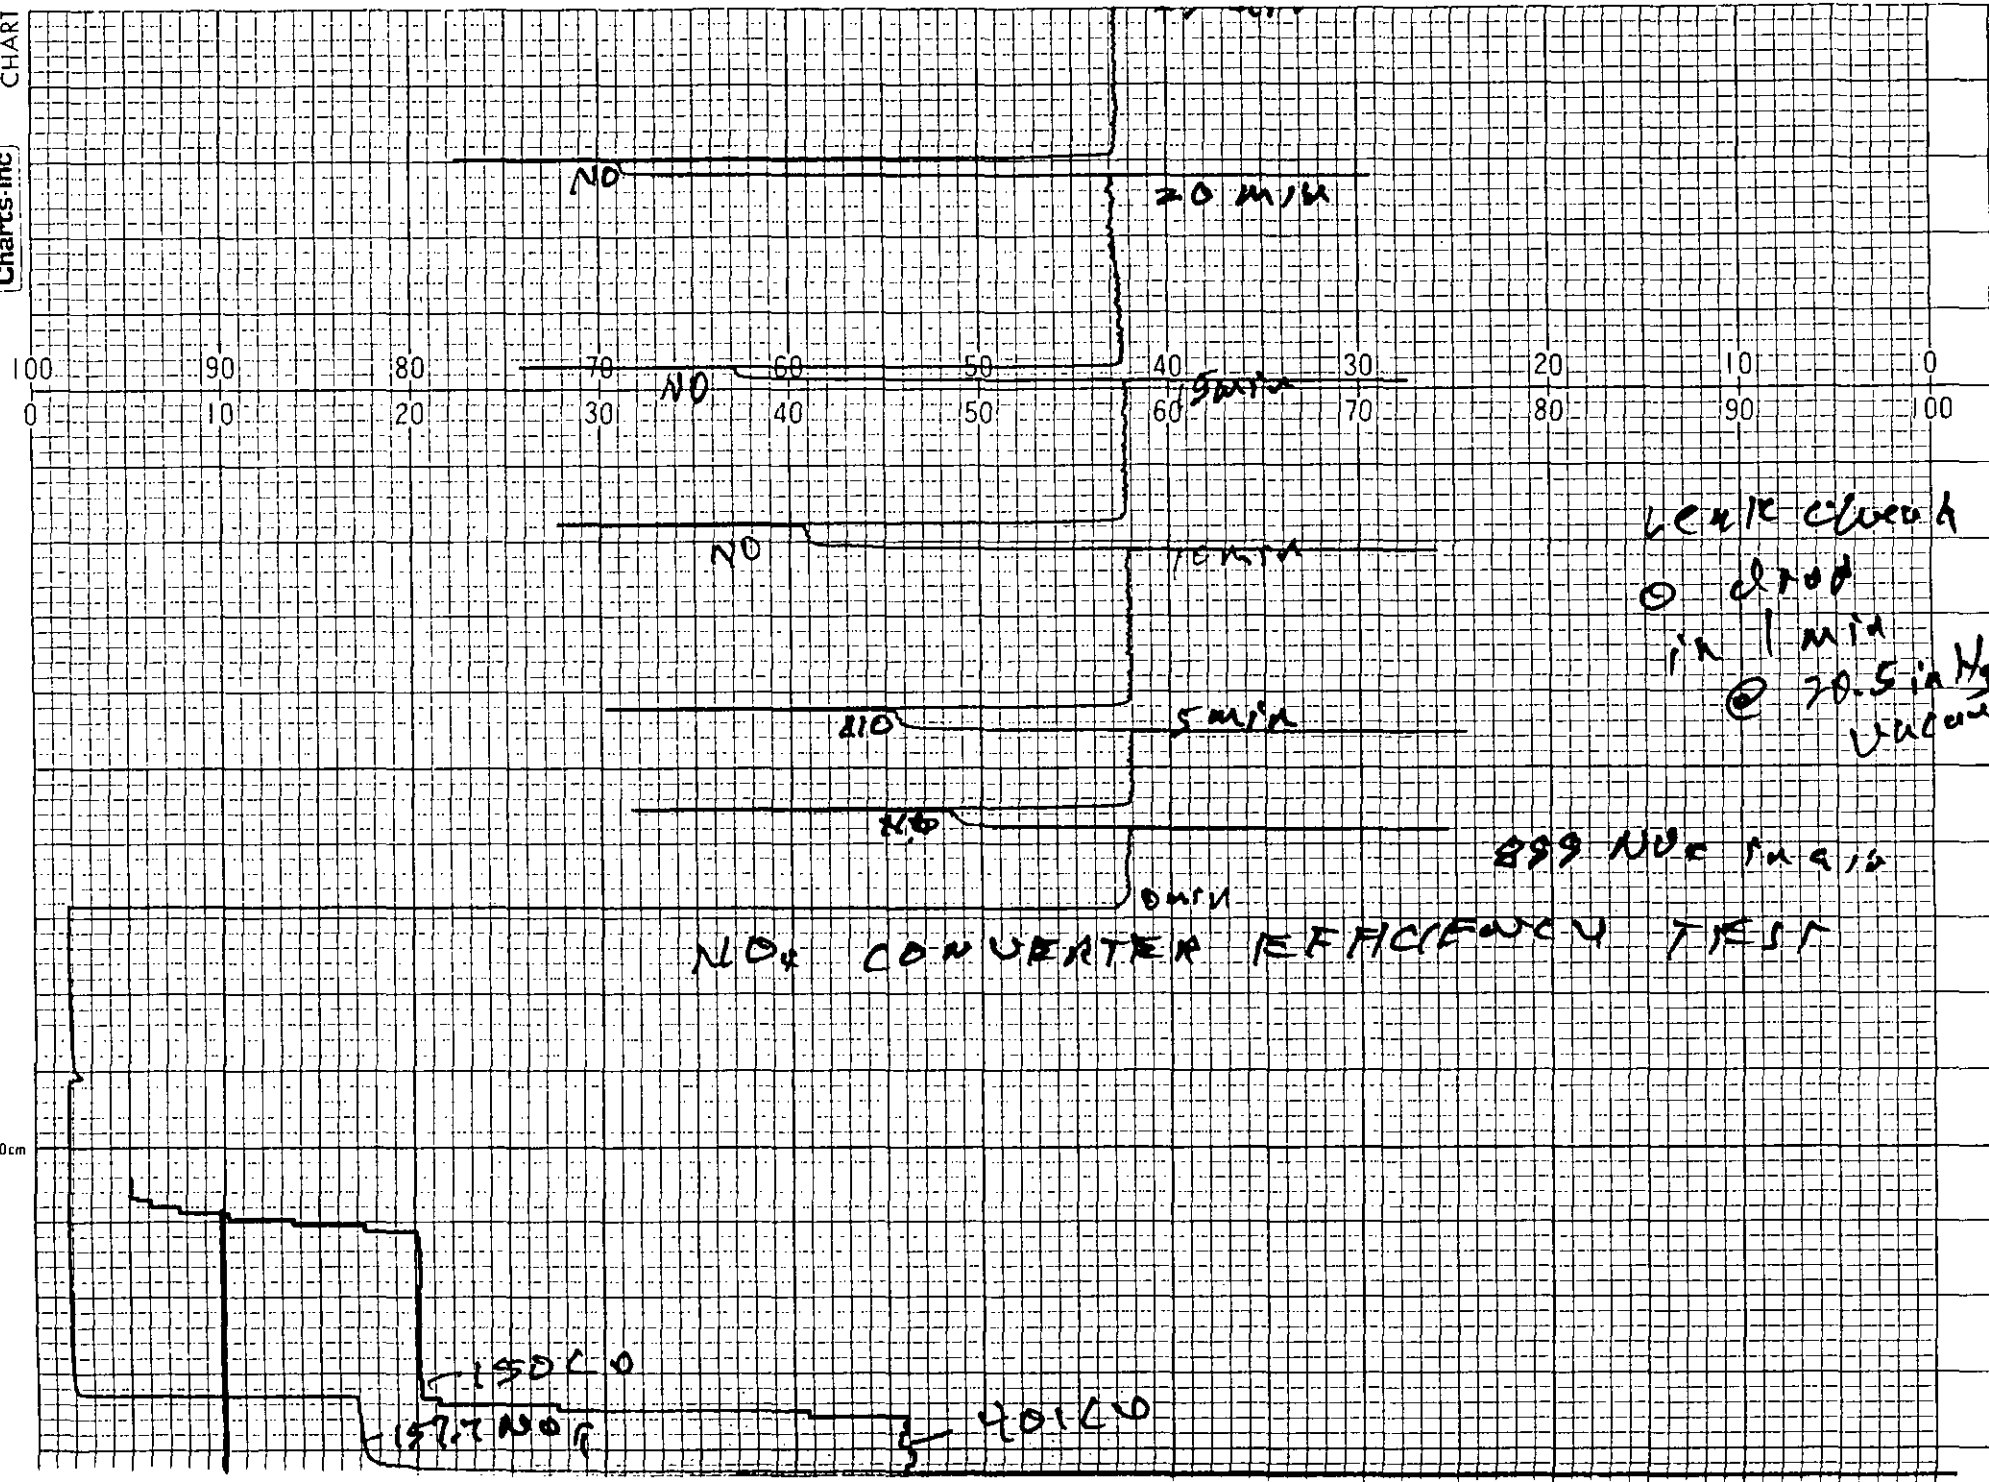 CHART
Charts-Inc
NO
20 min
100 90 80 70 60 50 40 30 20 10 0
NO
15min
0 10 20 30 40 50 60 70 80 90 100
NO
10 min
Leak check
0 drop
in 1 min
@ 20.5 in Hg
vacuum
NO
5 min
NO
NOx in air
0 min
NOx CONVERTER EFFICIENCY TEST
0cm
150 CO
401 CO